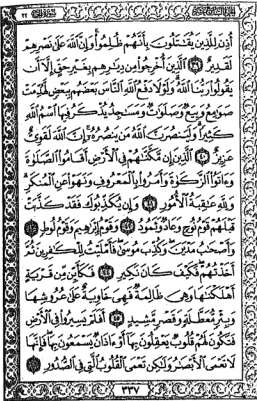 أُذِنَ لِلَّذِينَ يُقَٰتَلُونَ بِأَنَّهُمْ ظُلِمُواْ وَإِنَّ ٱللَّهَ عَلَىٰ نَصْرِهِمْ
لَقَدِيرٌ ٣٩ ٱلَّذِينَ أُخْرِجُواْ مِن دِيَٰرِهِم بِغَيْرِ حَقٍّ إِلَّآ أَن
يَقُولُواْ رَبُّنَا ٱللَّهُ وَلَوْلَا دَفْعُ ٱللَّهِ ٱلنَّاسَ بَعْضَهُم بِبَعْضٍ لَّهُدِّمَتْ
صَوَٰمِعُ وَبِيَعٌ وَصَلَوَٰتٌ وَمَسَٰجِدُ يُذْكَرُ فِيهَا ٱسْمُ ٱللَّهِ
كَثِيرًا وَلَيَنصُرَنَّ ٱللَّهُ مَن يَنصُرُهُۥٓ إِنَّ ٱللَّهَ لَقَوِىٌّ
عَزِيزٌ ٤٠ ٱلَّذِينَ إِن مَّكَّنَّٰهُمْ فِى ٱلْأَرْضِ أَقَامُواْ ٱلصَّلَوٰةَ
وَءَاتَوُاْ ٱلزَّكَوٰةَ وَأَمَرُواْ بِٱلْمَعْرُوفِ وَنَهَوْاْ عَنِ ٱلْمُنكَرِ
وَلِلَّهِ عَٰقِبَةُ ٱلْأُمُورِ ٤١ وَإِن يُكَذِّبُوكَ فَقَدْ كَذَّبَتْ
قَبْلَهُمْ قَوْمُ نُوحٍ وَعَادٌ وَثَمُودُ ٤٢ وَقَوْمُ إِبْرَٰهِيمَ وَقَوْمُ لُوطٍ ٤٣
وَأَصْحَٰبُ مَدْيَنَ وَكُذِّبَ مُوسَىٰ فَأَمْلَيْتُ لِلْكَٰفِرِينَ ثُمَّ
أَخَذْتُهُمْ فَكَيْفَ كَانَ نَكِيرِ ٤٤ فَكَأَيِّن مِّن قَرْيَةٍ
أَهْلَكْنَٰهَا وَهِىَ ظَالِمَةٌ فَهِىَ خَاوِيَةٌ عَلَىٰ عُرُوشِهَا
وَبِئْرٍ مُّعَطَّلَةٍ وَقَصْرٍ مَّشِيدٍ ٤٥ أَفَلَمْ يَسِيرُواْ فِى ٱلْأَرْضِ
فَتَكُونَ لَهُمْ قُلُوبٌ يَعْقِلُونَ بِهَآ أَوْ ءَاذَانٌ يَسْمَعُونَ بِهَا فَإِنَّهَا
لَا تَعْمَى ٱلْأَبْصَٰرُ وَلَٰكِن تَعْمَى ٱلْقُلُوبُ ٱلَّتِى فِى ٱلصُّدُورِ ٤٦
٣٣٧